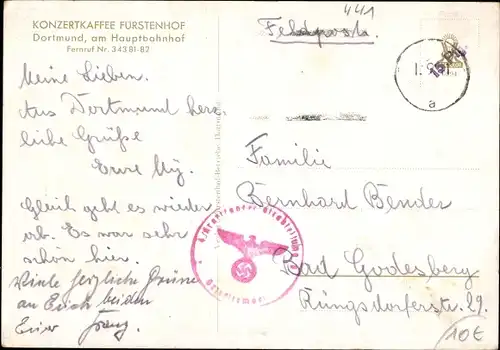 441
KONZERTKAFFEE FÜRSTENHOF
Dortmund, am Hauptbahnhof
Fernruf Nr. 34381-82
Feldpost.
Meine Lieben.
Aus Dortmund herz
liche Grüße
Eure
Gleich geht es wieder
ab. Es war sehr
schön hier.
Viele herzliche Grüsse
an Euch beiden
Euer Franz
a
Familie
Bernhard Bender
Bad Godesberg
Rüngsdorferstr. 29.
10€